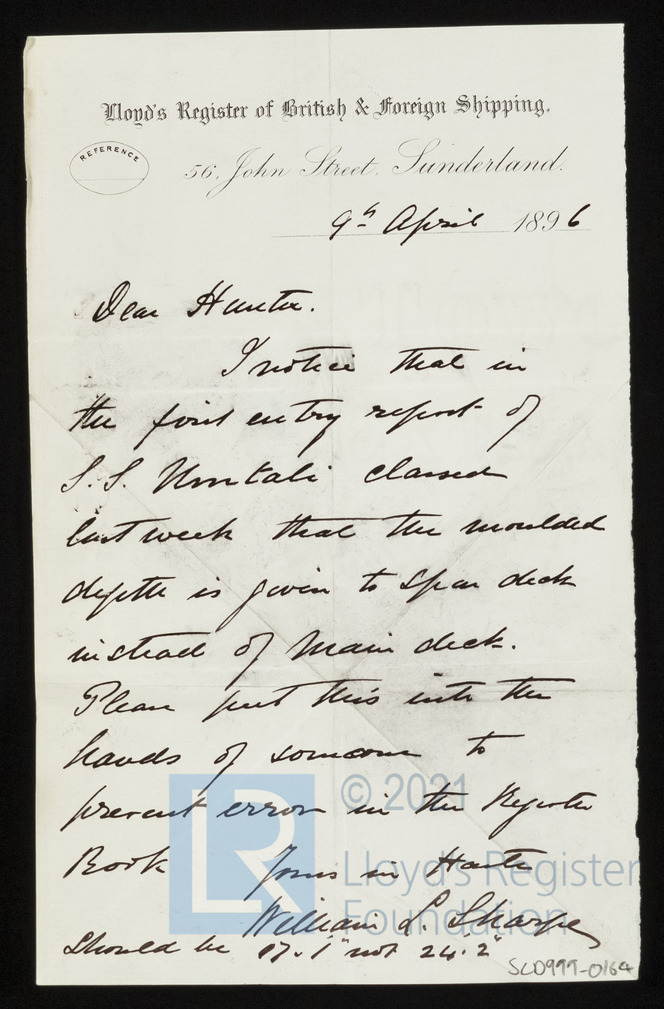 Lloyd's Register of British & Foreign Shipping.
REFERENCE
56, John Street, Sunderland.
9th April 1896
Dear Hunter.
I notice that in
the first entry report of
S.S. Umtali classed
last week that the moulded
depth is given to Spar deck
instead of Main deck.
Please put this into the
hands of someone to
prevent error in the Register
Book Yours in Haste
William L. Sharpe
Should be 17.1" not 24.2"
SLD999-0164
© 2021
LR
Lloyd's Register
Foundation